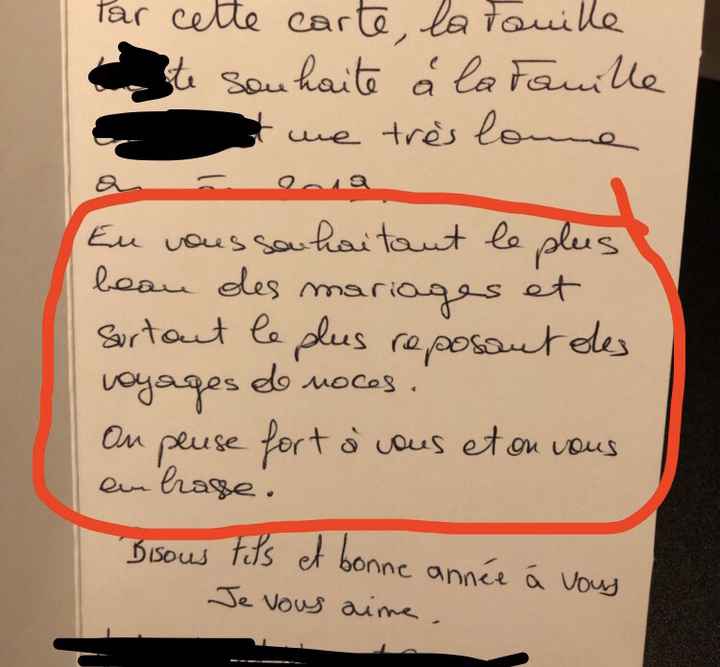 Par cette carte, la Famille
souhaite à la Famille
une très bonne
2019.
En vous souhaitant le plus
beau des mariages et
surtout le plus reposant des
voyages de noces.
On pense fort à vous et on vous
embrasse.
Bisous fils et bonne année à vous
Je vous aime.